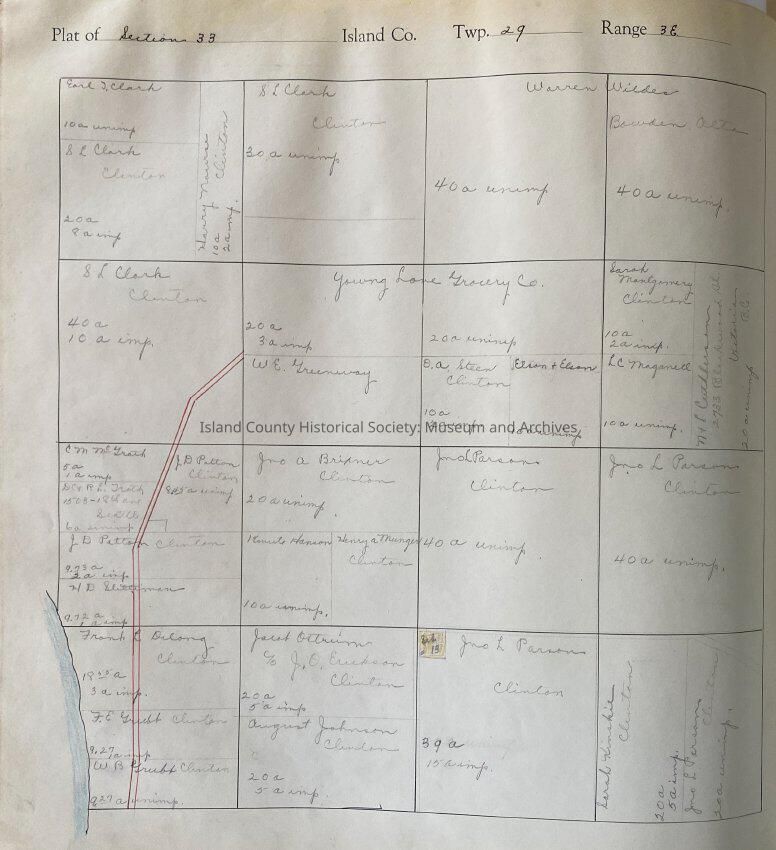 Plat of Section 33 Island Co. Twp. 29 Range 3E
Earl T. Clark
10 a unimp
S L Clark
Clinton
20 a
8 a imp
Harry
Clinton
10 a
2 a imp.
S L Clark
Clinton
30 a unimp
Warren Wildes
40 a unimp
Bowden, Alta
40 a unimp.
S L Clark
Clinton
40 a
10 a imp.
Young Love Grocery Co.
20 a
3 a imp
20 a unimp
W. E. Greenway
O. A. Steen
Clinton
10 a
Elson + Elson
unimp
Sarah
Montgomery
Clinton
10 a
2 a imp.
L C Maganell
10 a unimp.
Victoria B.C.
20 a unimp
Island County Historical Society: Museum and Archives
C M McGrath
5 a
1 a imp
Seattle
6 a unimp
J. D Patton
Clinton
unimp
J D Patton Clinton
9.73 a
2 a imp
9.72 a
1 a imp
Jno A Brixner
Clinton
20 a unimp.
Knute Hanson
10 a unimp.
Henry A Munger
Clinton
Jno L Parson
Clinton
40 a unimp.
Jno L Parson
Clinton
40 a unimp.
Frank E Delong
Clinton
3 a imp.
F. E Grubb Clinton
9.27
1 a imp
W B Grubb Clinton
9.27 a unimp.
Jacob Ottrium
c/o J. O. Erickson
Clinton
20 a
5 a imp
August Johnson
Clinton
20 a
5 a imp
Jno L Parson
Clinton
39 a
15 a imp.
Sarah
Clinton
20 a
5 a imp.
Jno L Parsons
Clinton
20 a unimp.